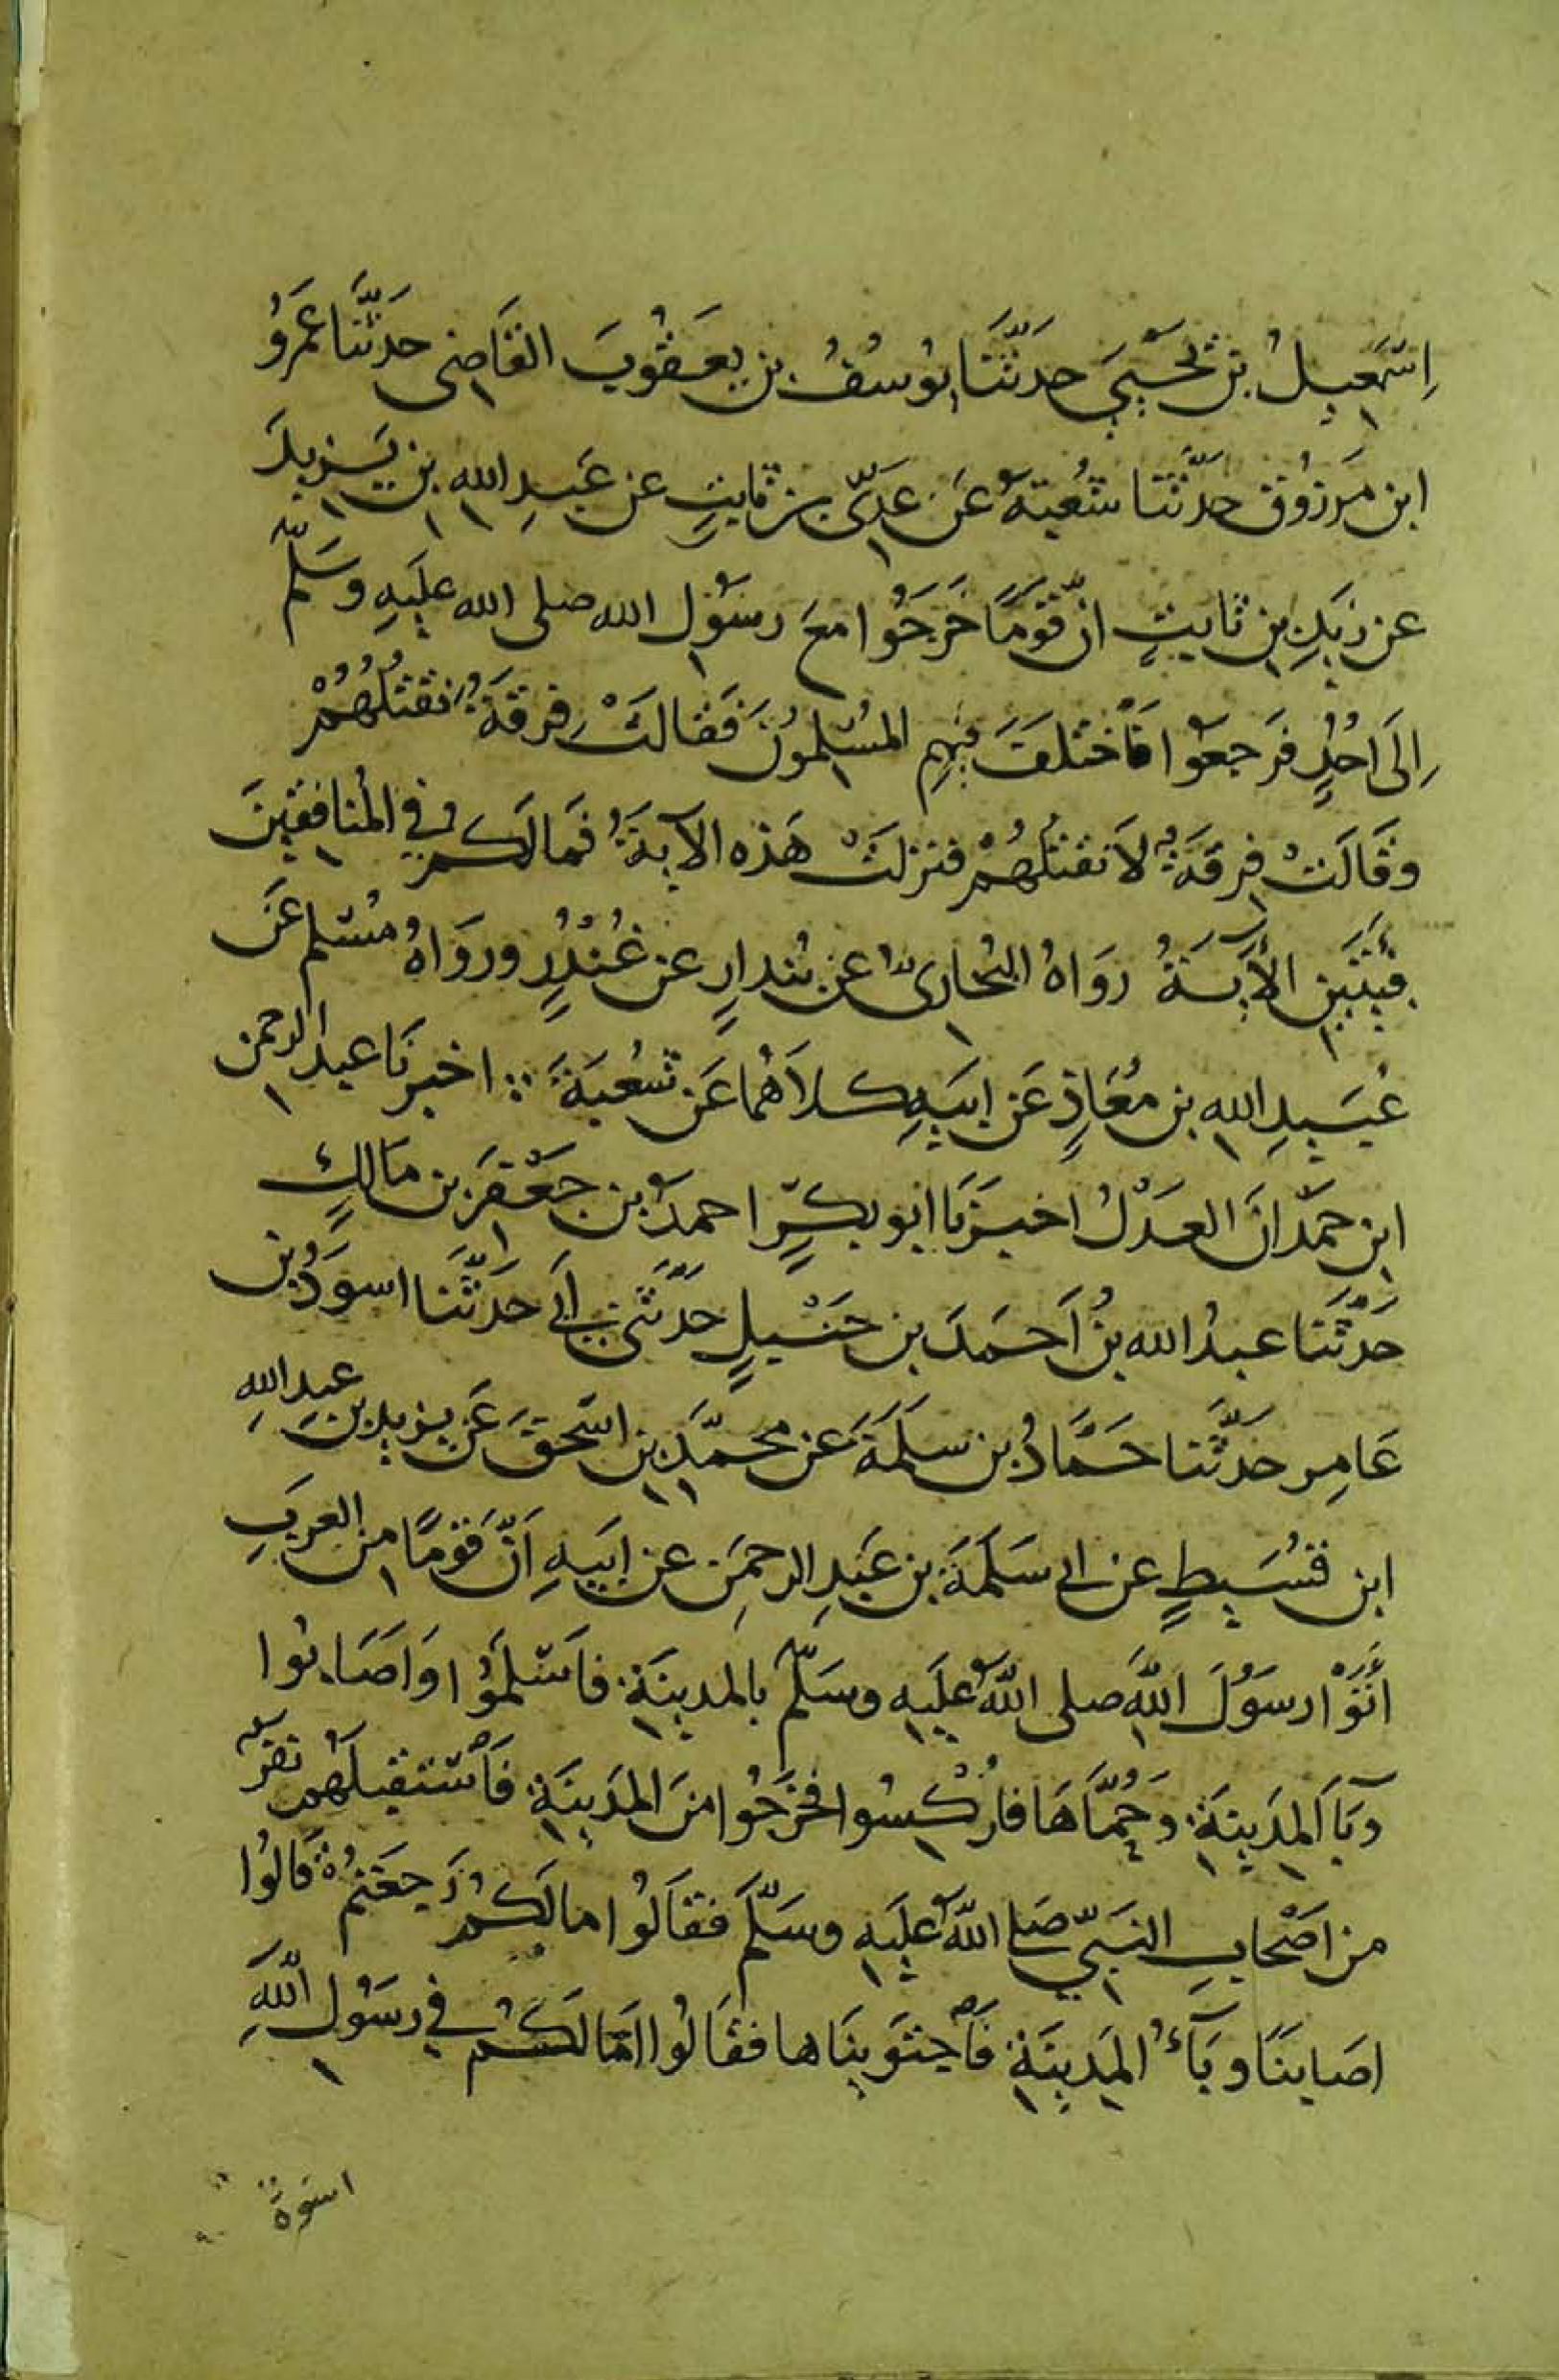 اِسْمَعِيلُ بن يَحْيَى حدثَّنَا يُوسُفُ بن يَعقُوبَ القَاضِى حدَثَّنَا عَمَرُو
ابن مَرزُوق حدثَّنا شُعْبَةُ عَن عَدِىّ بن ثابتٍ عن عَبدِ الله بن يَزيدَ
عن زَيدِ بنِ ثابتٍ انّ قَومًا خَرَجُوا معَ رسُول الله صلى الله عليَهِ وسَلّم
اِلَى اُحُدٍ فَرجعَوا فَأختلَفَ فِيهِم المُسْلِمُونَ فَقالَتْ فِرقَةٌ نَقتُلُهُمْ
وقَالَتْ فِرقَةٌ لاَ نقتُلُهُمْ فنزلَتْ هَذه الآيةُ فَمالَكُم فِي المُنافِقِينَ
فِئَتَيَنِ الأيَةُ رَوَاهُ البُخَارِىُّ عن بُندارٍ عن غُنْدُرٍ وروَاهُ مُسْلم عَن
عُبَيدِ اللهِ بن مُعَاذٍ عَن ابيَهِ كلاَهُما عَن شُعبَةَ ؞ اخبرنَا عبد الرحمن
ابن حَمّدانَ العَدْلُ اخبَرنَا ابو بكرٍ احمدُ بن جَعْفَر بن مَالكٍ
حَدثَّنَا عبدُ الله بنُ اَحمَدَ بن حَنْبلٍ حَدثَّنى اَبِي حَدثَّنَا اسوَدُ بن
عَامِر حدثَّنا حَمَّادُ بن سَلَمَةَ عن محمَّدَ بن اسْحقَ عَن يزيد بن عبد اللهِ
ابن قسُيَطٍ عن ابى سَلَمَةَ بن عَبدِ الرحمَن عن ابيَهِ اَنّ قَومًا من العربِ
اَتَوْا رسَوُلَ اللّهِ صلى اللّهُ علَيهِ وسَلّم بالمدينَةِ فاَسْلَمُوا وَاصَابُوا
وَبَاَ المِدَينةِ وَحُمَّاهَا فاُرْكِسُوا فخَرَجُوا منَ المِدَينَةِ فَاَسْتقبلَهُمْ نفَرٌ
من اَصْحابِ النَبِيّ صَلى اللّهُ علَيهِ وسَلَّم فقاَلُوا مالَكُمْ رَجعَتُمْ قَالُوا
اصَابنَا وبَآءُ المِدَينَةِ فَأجتَوَينَاها فقَالُوا امَالَكُمْ فِي رسَوُل اللّهِ
اسوة